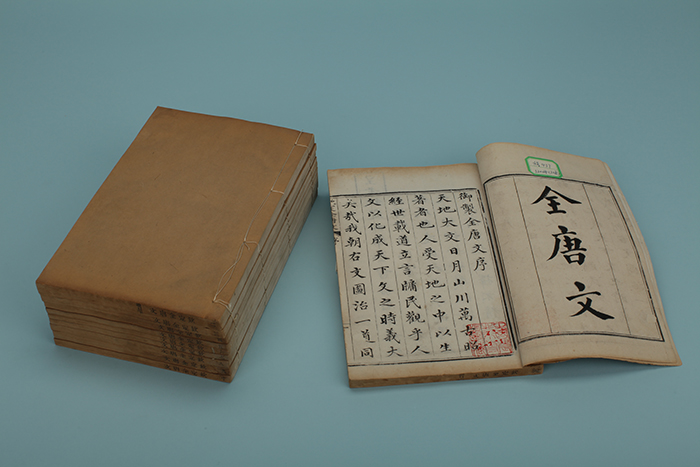 全唐文
御製全唐文序
天地大文日月山川萬古昭
著者也人受天地之中以生
經世載道立言牖民觀乎人
文以化成天下文之時義大
矣哉我朝右文圖治一道同